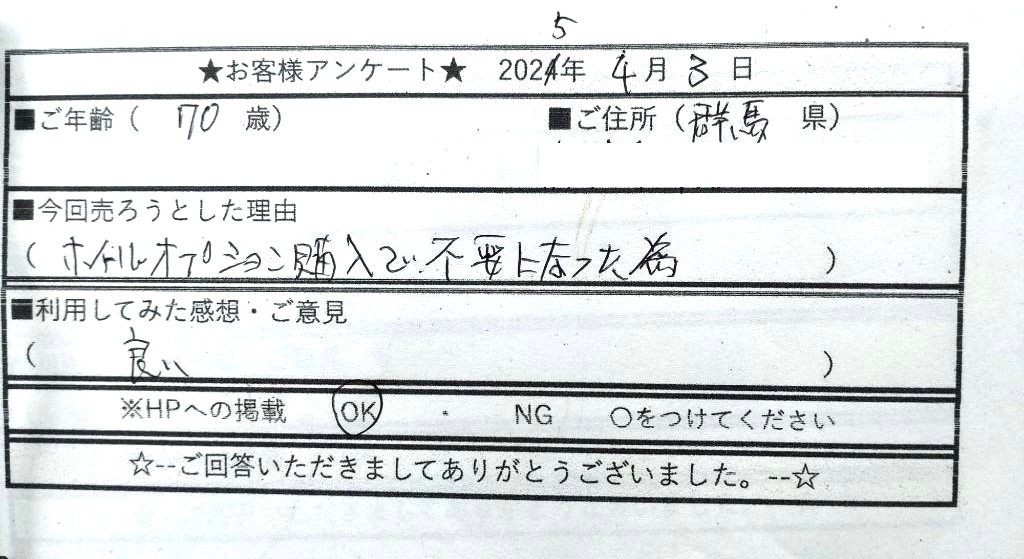 5
★お客様アンケート★ 2024年 4月 3日
■ご年齢( 70 歳) ■ご住所(群馬 県)
■今回売ろうとした理由
(ホイールオプション購入で不要になった為)
■利用してみた感想・ご意見
(良い)
※HPへの掲載 OK ・ NG ○をつけてください
☆--ご回答いただきましてありがとうございました。--☆